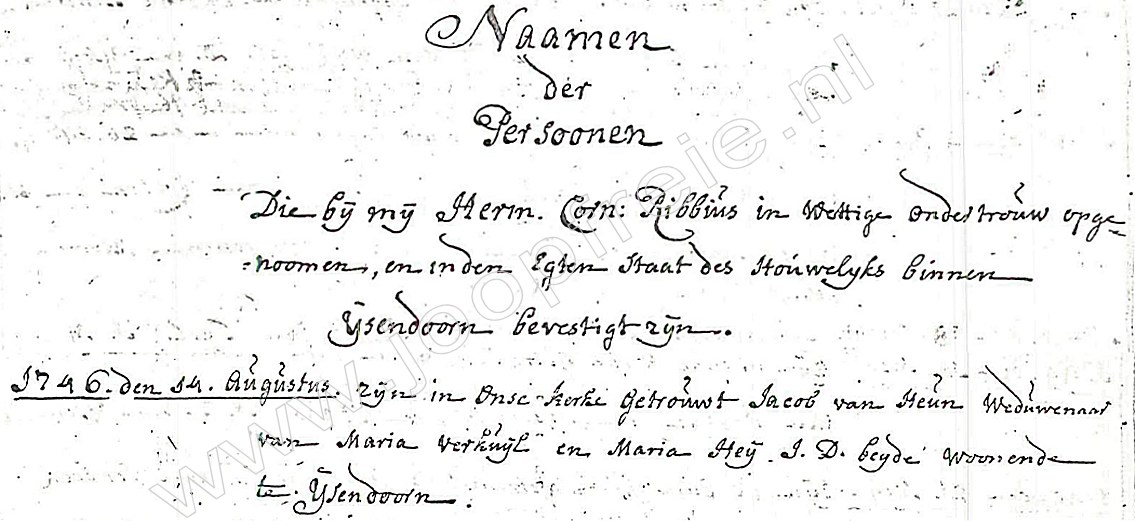 Naamen
der
Persoonen
Die bÿ mÿ Herm. Corn: Ribbiŭs in Wettige ondertroŭw opge=
=noomen, en in den Egten Staat des Hoŭwelyks binnen
Ysendoorn bevestigt zÿn.
1746. den 14. Aŭgŭstus. zÿn in Onse Kerke Getroŭwt Jacob van Heŭn Wedŭwenaar
van Maria Verkŭÿl en Maria Heÿ. J. D. beyde woonende
te Ysendoorn.
www.joopireie.nl